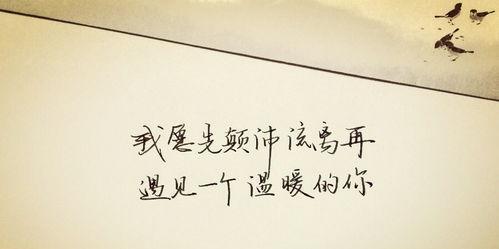 我愿先颠沛流离再
遇见一个温暖的你